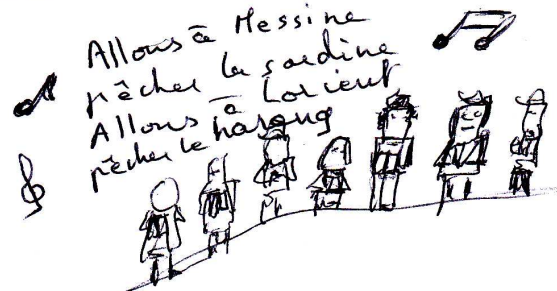 Allons à Messine
pêcher la sardine
Allons à Lorient
pêcher le hareng